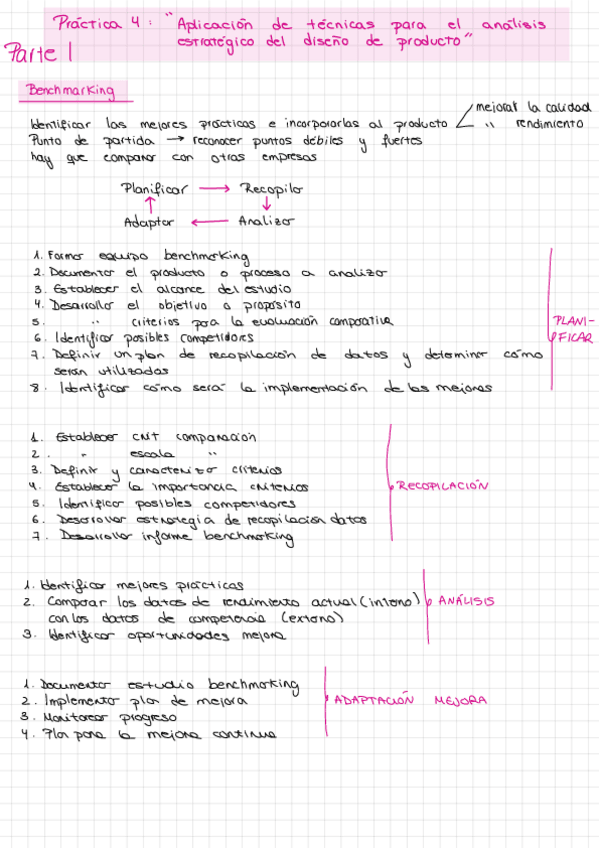 Práctica 4: "Aplicación de técnicas para el análisis
estratégico del diseño de producto"
Parte 1
Benchmarking
Identificar las mejores prácticas e incorporarlas al producto
mejorar la calidad
" rendimiento
Punto de partida → reconocer puntos débiles y fuertes
hay que comparar con otras empresas
Planificar → Recopilar
↑ ↓
Adaptar ← Analizar
1. Formar equipo benchmarking
2. Documentar el producto o proceso a analizar
3. Establecer el alcance del estudio
4. Desarrollar el objetivo o propósito
5. " criterios para la evaluación comparativa
6. Identificar posibles competidores
7. Definir un plan de recopilación de datos y determinar cómo
serán utilizadas
8. Identificar cómo será la implementación de las mejoras
PLANI-
FICAR
1. Establecer CNT comparación
2. " escala "
3. Definir y caracterizar criterios
4. Establecer la importancia criterios
5. Identificar posibles competidores
6. Desarrollar estrategia de recopilación datos
7. Desarrollar informe benchmarking
RECOPILACIÓN
1. Identificar mejores prácticas
2. Comparar los datos de rendimiento actual (interno)
con los datos de competencia (externo)
3. Identificar oportunidades mejora
ANÁLISIS
1. Documentar estudio benchmarking
2. Implementar plan de mejora
3. Monitorear progreso
4. Plan para la mejora continua
ADAPTACIÓN MEJORA